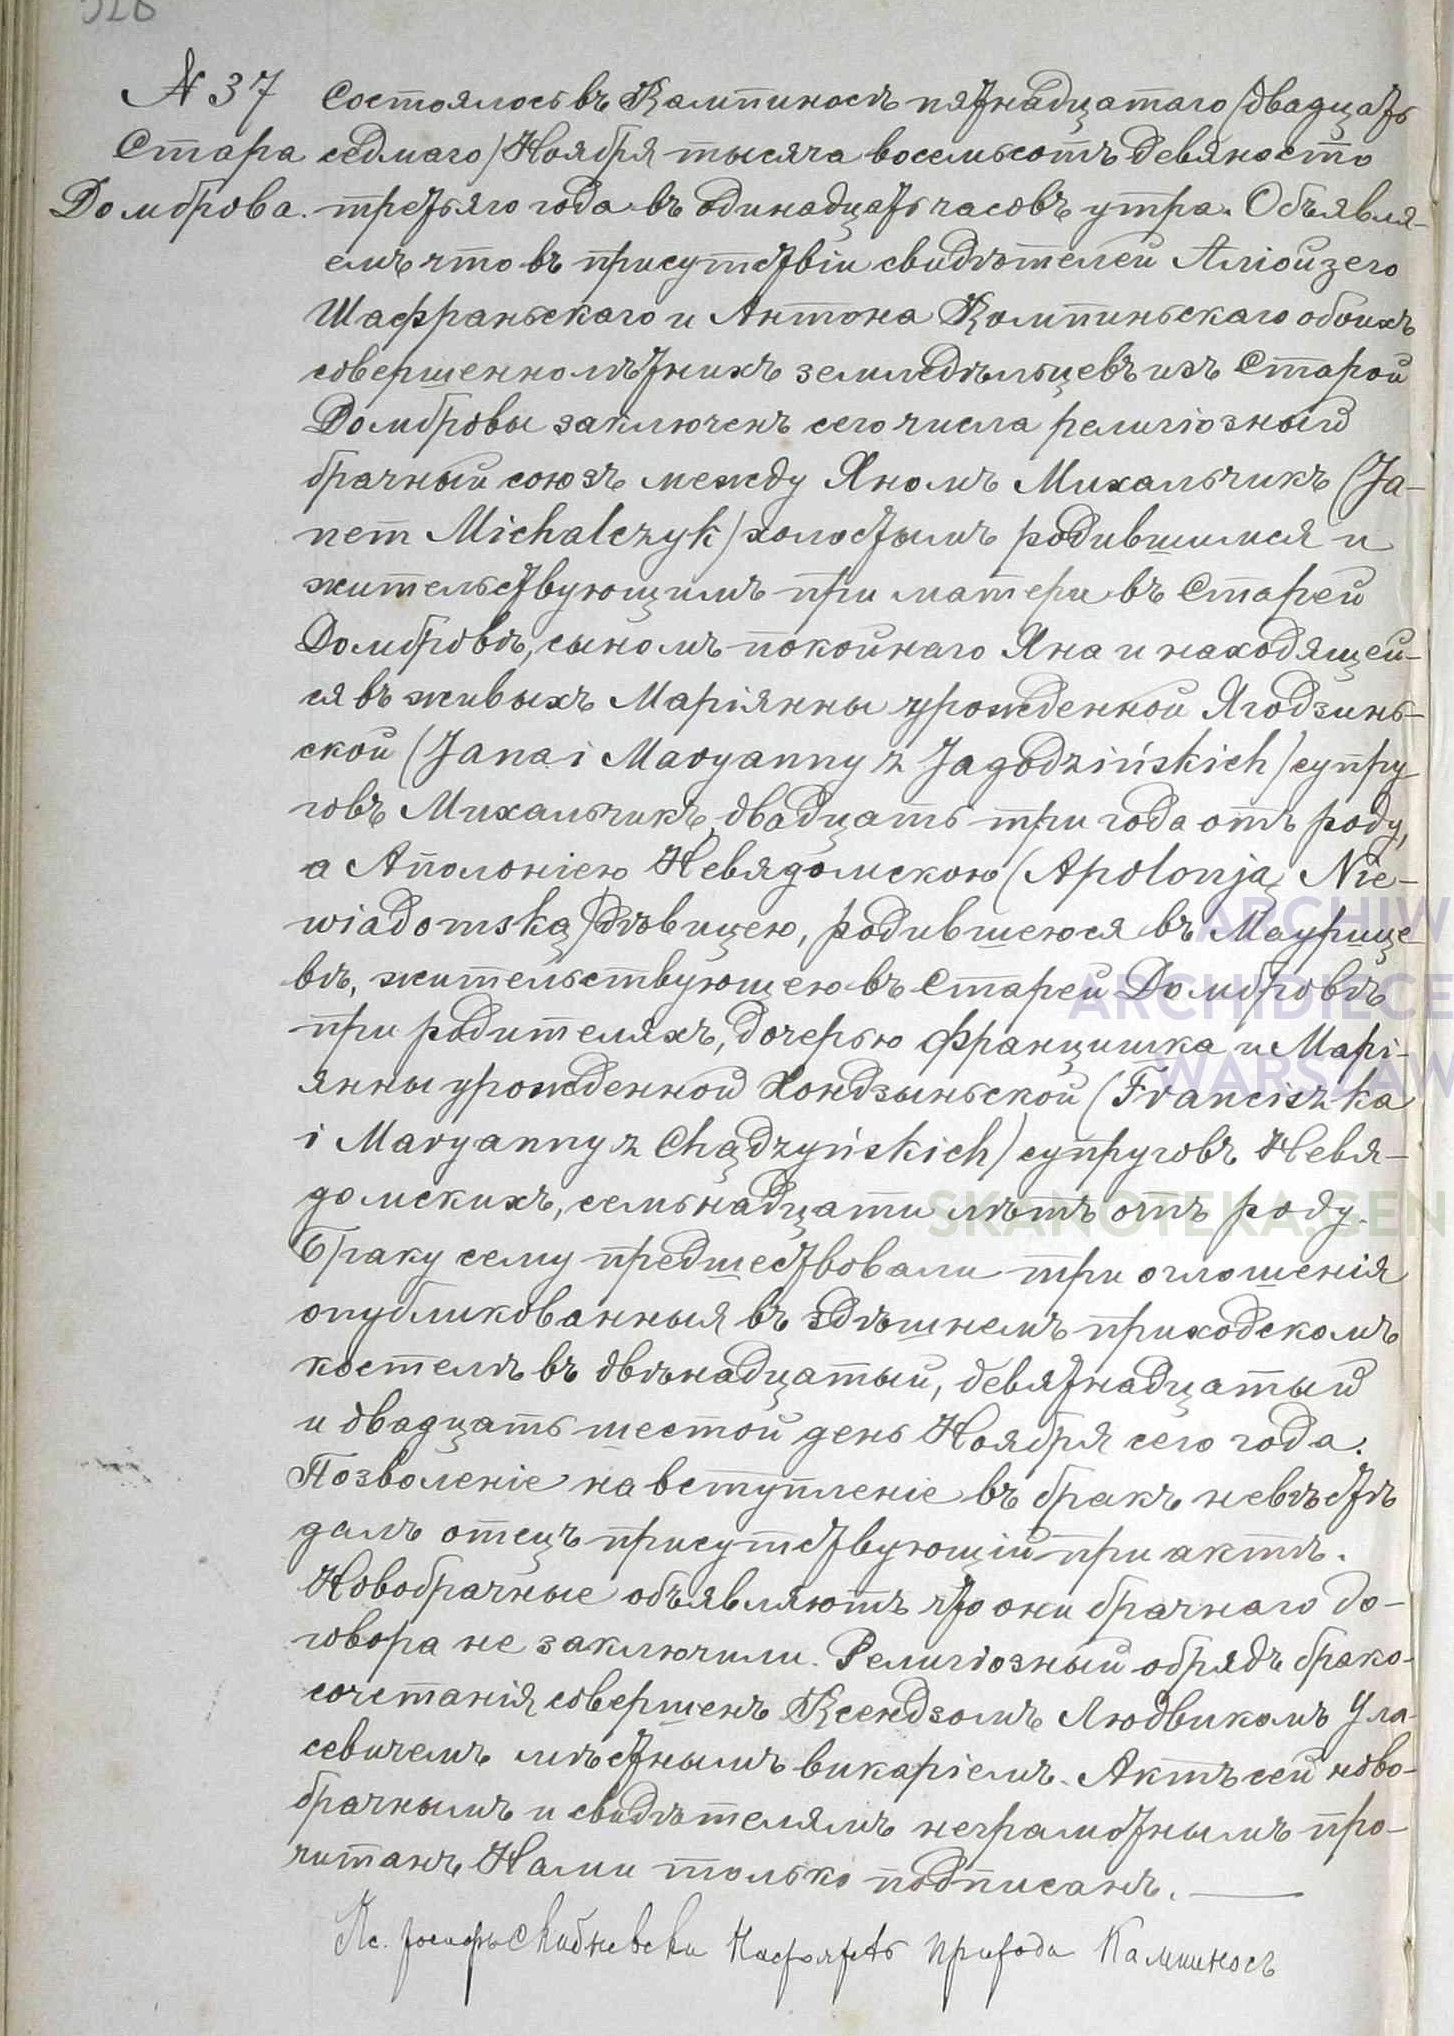 328
№ 37
Стара
Домброва.
Состоялось въ Кампиносѣ пятнадцатаго /двадцать
седмаго/ Ноября тысяча восемьсотъ девяносто
третьяго года въ одинадцать часовъ утра. Объявля-
емъ что въ присутствіи свидѣтелей Аліойзего
Шафраньскаго и Антона Кампиньскаго обоихъ
совершеннолѣтнихъ земледѣльцевъ изъ Старой
Домбровы заключенъ сего числа религіозный
брачный союзъ между Яномъ Михальчикъ (Ja-
nem Michalczyk) холостымъ родившимся и
жительствующимъ при матери въ Старей
Домбровѣ, сыномъ покойнаго Яна и находящей-
ся въ живыхъ Маріянны урожденной Ягодзинь-
ской (Jana i Maryanny z Jagodzińskich) супру
говъ Михальчикъ, двадцать три года отъ роду,
а Аполоніею Невядомскою (Apolonją Nie-
wiadomską) дѣвицею, родившеюся въ Маурице
вѣ, жительствующею въ Старей Домбровѣ
при родителяхъ, дочерью Францишка и Марі-
янны урожденной Хондзыньской (Franciszka
i Maryanny z Chądzyńskich) супруговъ Невя-
домскихъ, семьнадцати лѣтъ отъ роду.
Браку сему предшествовали три оглошенія
опубликованныя въ здѣшнемъ приходскомъ
костелѣ въ двѣнадцатый, девятнадцатый
и двадцать шестой день Ноября сего года.
Позволеніе на вступленіе въ бракъ невѣстѣ
далъ отецъ присутствующій при актѣ.
Новобрачные объявляютъ что они брачнаго до-
говора не заключили. Религіозный обрядъ брако-
сочетанія совершенъ Ксендзомъ Людвикомъ Ула-
севичемъ мѣстнымъ викаріемъ. Актъ сей ново-
брачнымъ и свидѣтелямъ неграмотнымъ про-
читанъ Нами только подписанъ.
Кс. Іосифъ Скибневски Настоятель Прихода Кампиносъ
ARCHIW
ARCHIDIECE
WARSZAW
SKANOTEKA.GEN